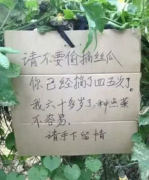 请不要偷摘丝瓜
你已经摘了四五次了。
我六十多岁了,种点菜
不容易,
请手下留情